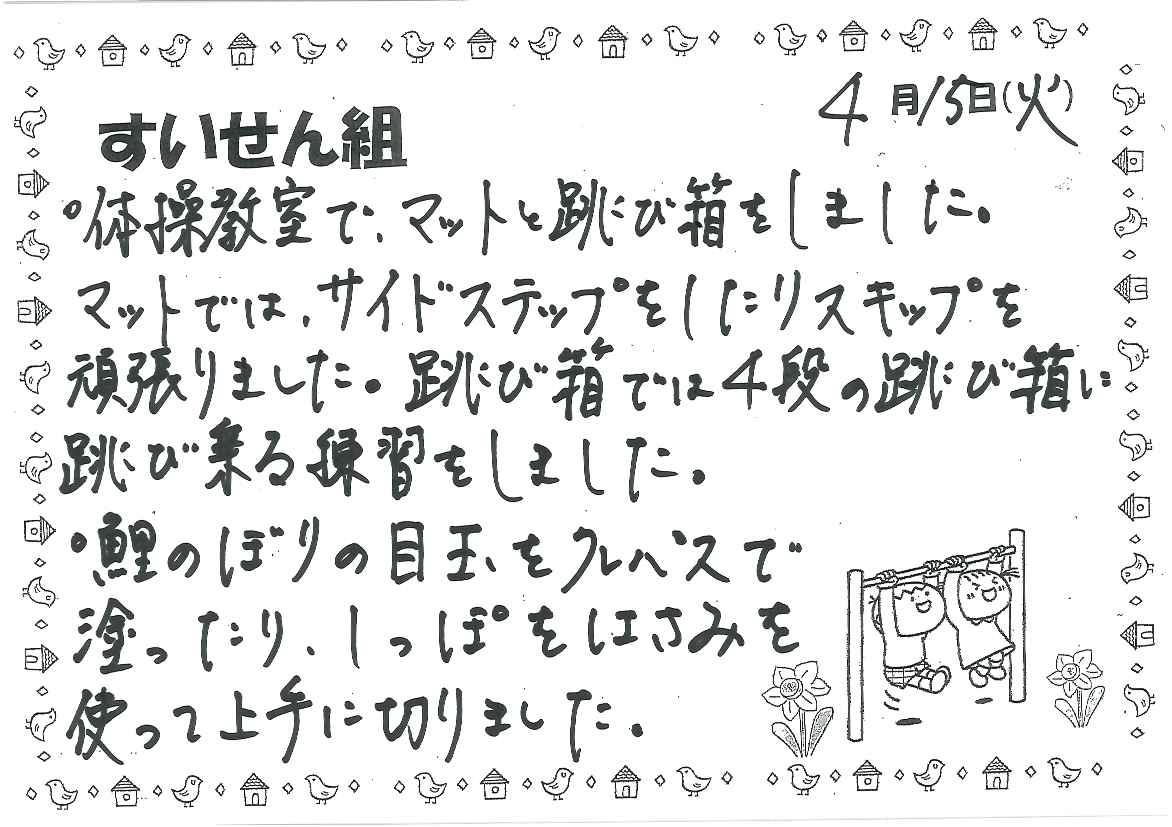 4月15日(火)
すいせん組
°体操教室で、マットと跳び箱をしました。
マットでは、サイドステップをしたりスキップを
頑張りました。跳び箱では4段の跳び箱に
跳び乗る練習をしました。
°鯉のぼりの目玉をクレパスで
塗ったり、しっぽをはさみを
使って上手に切りました。